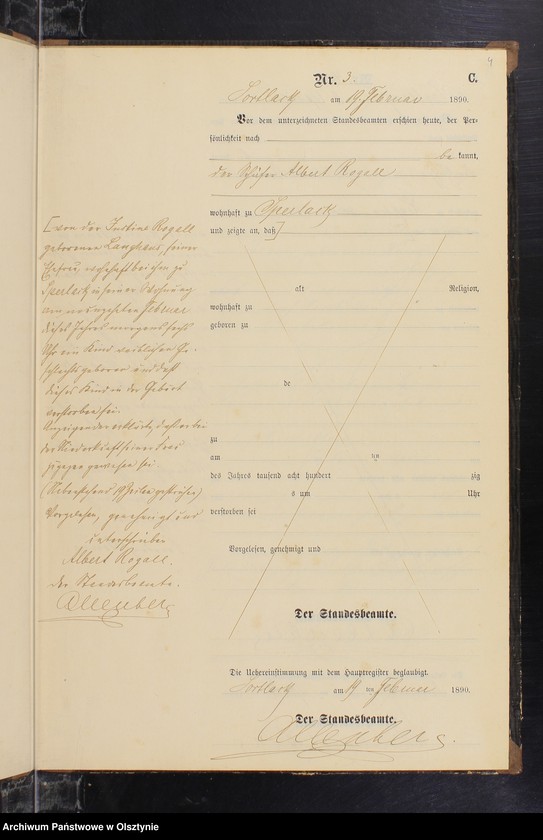 4
Nr. 3.
C.
Sortlack am 19. Februar 1890.
Vor dem unterzeichneten Standesbeamten erschien heute, der Per-
sönlichkeit nach
be kannt,
der Albert Rogall
wohnhaft zu Sperlack
und zeigte an, daß]
[von der Justine Rogall
geborenen Langhans, seiner
Ehefrau, wohnhaft bei ihm zu
Sperlack in seiner Wohnung
am neunzehnten Februar
dieses Jahres morgens sechs
Uhr ein Kind weiblichen Ge-
schlechts geboren und daß
dieses Kind in der Geburt
verstorben sei.
Anzeigender erklärte, daß er bei
der Niederkunft seiner Frau
zugegen gewesen sei.
Vorgelesen, genehmigt und
unterschrieben
Albert Rogall.
Der Standesbeamte.
alt Religion,
wohnhaft zu
geboren zu
de
zu
am ten
des Jahres tausend acht hundert zig
s um Uhr
verstorben sei
Vorgelesen, genehmigt und
Der Standesbeamte.
Die Uebereinstimmung mit dem Hauptregister beglaubigt.
Sortlack am 19 ten Februar 1890.
Der Standesbeamte.
Archiwum Państwowe w Olsztynie